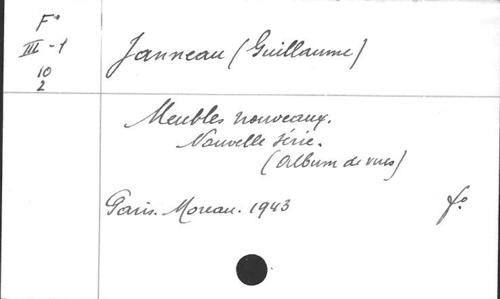 F°
III - 1
10
2
Janneau (Guillaume)
Meubles nouveaux.
Nouvelle série.
(Album de vues)
Paris. Moreau. 1943
f°